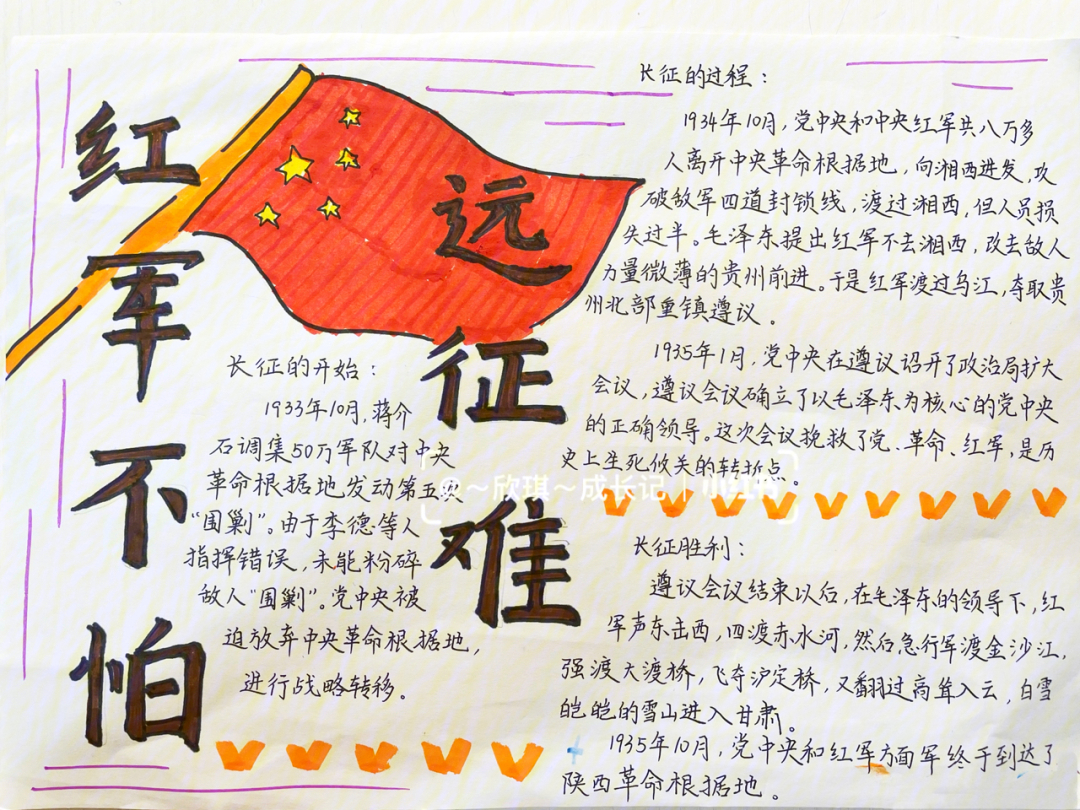 红军不怕
远征难
长征的开始：
1933年10月，蒋介
石调集50万军队对中央
革命根据地发动第五次
“围剿”。由于李德等人
指挥错误，未能粉碎
敌人“围剿”。党中央被
迫放弃中央革命根据地，
进行战略转移。
长征的过程：
1934年10月，党中央和中央红军共八万多
人离开中央革命根据地，向湘西进发，攻
破敌军四道封锁线，渡过湘西，但人员损
失过半。毛泽东提出红军不去湘西，改去敌人
力量微薄的贵州前进。于是红军渡过乌江，夺取贵
州北部重镇遵议。
1935年1月，党中央在遵议召开了政治局扩大
会议，遵议会议确立了以毛泽东为核心的党中央
的正确领导。这次会议挽救了党、革命、红军，是历
史上生死攸关的转折点。
长征胜利：
遵议会议结束以后，在毛泽东的领导下，红
军声东击西，四渡赤水河，然后急行军渡金沙江，
强渡大渡桥，飞夺沪定桥，又翻过高耸入云，白雪
皑皑的雪山进入甘肃。
1935年10月，党中央和红军方面军终于到达了
陕西革命根据地。
@～欣琪～成长记｜小红书